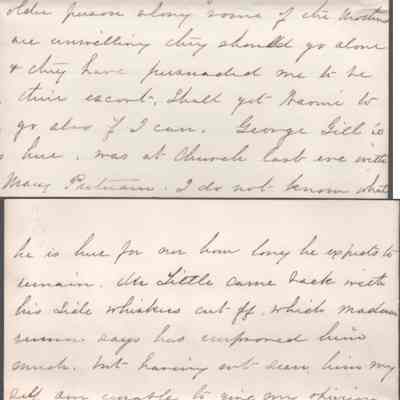 older person along some of the Mothers
are unwilling they should go alone
& they have persuaded me to be
their escort. Shall get Naomi to
go also if I can. George Gill is
here. was at Church last eve with
Mary Putnam. I do not know what
he is here for nor how long he expects to
remain. Mr Little came back with
his Side whiskers cut off. which madam
says has improved him
much. but having not seen him my
self am unable to give my opinion